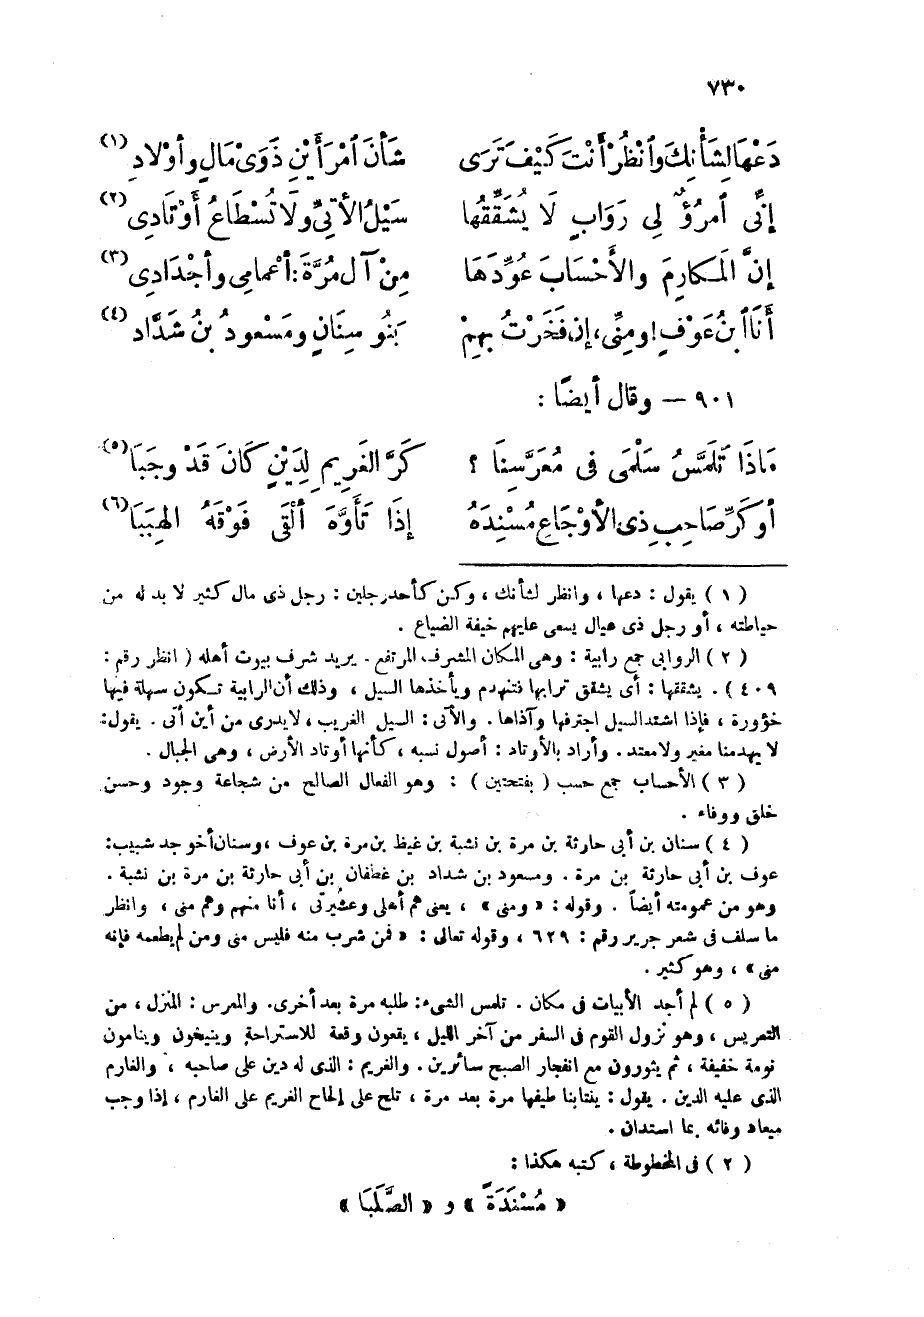 ٧٣٠
دَعْهَا لِشَأْنِكَ وَٱنْظُرْ أَنْتَ كَيْفَ تَرَى شَأْنَ ٱمْرَأَيْنِ ذَوَىْ مَالٍ وأَوْلَادِ (١)
إِنِّى ٱمرُؤٌ لِى رَوَابٍ لَا يُشَقِّقُهَا سَيْلُ الأَتِىِّ ولَا تُسْطَاعُ أَوْتَادِى (٢)
إِنَّ المَكارِمَ والأَحْسَابَ عُوِّدَهَا مِنْ آلِ مُرَّةَ: أَعْمامِى وأَجْدَادِى (٣)
أَنَا ٱبنُ عَوْفٍ! ومِنِّى، إِن فَخَرْتُ بِهِمْ بَنُو سِنَانٍ ومَسْعودُ بنُ شَدَّادِ (٤)
٩٠١ — وقال أيضًا :
مَاذَا تَلَمَّسُ سَلْمَى فى مُعَرَّسِنَا ؟ كَرَّ الغَرِيمِ لِدَيْنٍ كَانَ قَدْ وجَبَا (٥)
أو كَرِّ صَاحِبِ ذِى الأوْجَاعِ مُسْنِدَهُ إِذَا تَأَوَّهَ أَلْقَى فَوْقَهُ الهِبَبَا (٦)
( ١ ) يقول : دعها ، وانظر لشأنك ، وكن كأحد رجلين : رجل ذى مال كثير لا بد له من
حياطته ، أو رجل ذى عيال يسعى عليهم خيفة الضياع .
( ٢ ) الروابى جمع رابية : وهى المكان المشرف المرتفع . يريد شرف بيوت أهله ( انظر رقم :
٤٠٩ ) . يشققها : أى يشقق ترابها فتنهدم ويأخذها السيل ، وذلك أن الرابية تكون سهلة فيها
خؤورة ، فإذا اشتد السيل اجترفها وآذاها . والأتى : السيل الغريب ، لا يدرى من أين أتى . يقول:
لا يهدمنا مغير ولا معتد . وأراد بالأوتاد : أصول نسبه ، كأنها أوتاد الأرض ، وهى الجبال .
( ٣ ) الأحساب جمع حسب ( بفتحتين ) : وهو الفعال الصالح من شجاعة وجود وحسن
خلق ووفاء .
( ٤ ) سنان بن أبى حارثة بن مرة بن نشبة بن غيظ بن مرة بن عوف ، وسنان أخو جد شبيب:
عوف بن أبى حارثة بن مرة . ومسعود بن شداد بن غطفان بن أبى حارثة بن مرة بن نشبة .
وهو من عمومته أيضاً . وقوله : « ومنى » ، يعنى هم أهلى وعشيرتى ، أنا منهم وهم منى ، وانظر
ما سلف فى شعر جرير رقم : ٦٢٩ ، وقوله تعالى : « فمن شرب منه فليس منى ومن لم يطعمه فإنه
منى » ، وهو كثير .
( ٥ ) لم أجد الأبيات فى مكان . تلمس الشىء: طلبه مرة بعد أخرى. والمعرس : المنزل ، من
التعريس ، وهو نزول القوم فى السفر من آخر الليل ، يقعون وقعة للاستراحة وينيخون وينامون
نومة خفيفة ، ثم يثورون مع انفجار الصبح سائرين . والغريم : الذى له دين على صاحبه ، والغارم
الذى عليه الدين . يقول : ينتابنا طيفها مرة بعد مرة ، تلح على إلحاح الغريم على الغارم ، إذا وجب
ميعاد وفائه بما استدان .
( ٢ ) فى المخطوطة ، كتبه هكذا :
« مُسْنَدَةً » و « الصَّلَبَا »